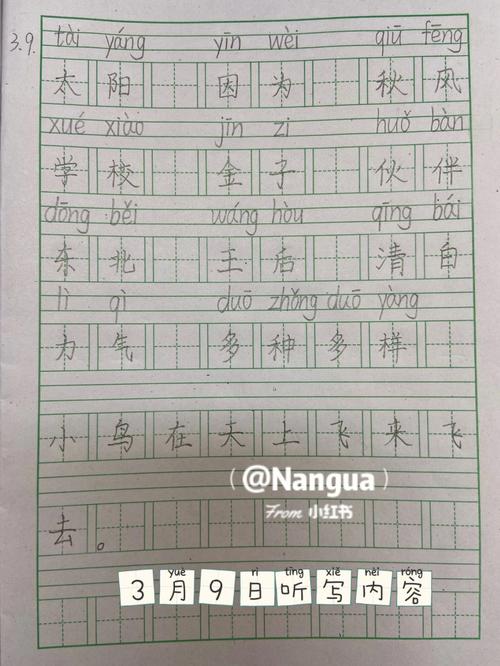 3.9. tài yáng yīn wèi qiū fēng
太阳 因为 秋风
xué xiào jīn zi huǒ bàn
学校 金子 伙伴
dōng běi wáng hòu qīng bái
东北 王后 清白
lì qì duō zhǒng duō yàng
力气 多种多样
小鸟在天上飞来飞
去。
(@Nangua)
From 小红书
yuè rì tīng xiě nèi róng
3月9日听写内容